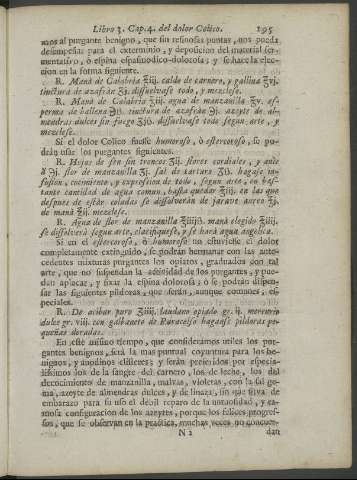 Libro 3. Cap. 4. del dolor Colico. 195
mos al purgante benigno, que sin resinosas puntas, nos pueda
desempeñar para el exterminio, y deposicion del material fer-
mentativo, ò espina espasmodico-dolorosa; y se hace la elec-
cion en la forma siguiente.
R. Maná de Calabria ℥iij. caldo de carnero, y gallina ℥vj.
tinctura de azafràn ℨj. dissuelvase todo, y mezclese.
R. Maná de Calabria ℥iij. agua de manzanilla ℥v. es-
perma de ballena tinctura de azafràn azeyte de al-
mendras dulces sin fuego dissuelvase todo segun arte, y
mezclese.
Si el dolor Colico fuesse humoroso, ò estercoroso, se po-
drán usar los purgantes siguientes.
R. Hojas de sen sin troncos ℨij. flores cordiales, y
flor de manzanilla ℨj. sal de tartaro hagase in-
fusion, cocimiento, y expression de todo, segun arte, en bas-
tante cantidad de agua comun, hasta quedar en las que
despues de estàr coladas se dissolveràn de jarave aureo
de maná ℥ij. mezclese.
R. Agua de flor de manzanilla manà elegido
se dissolverà segun arte, clarifiquese, y se harà agua angelica.
Si en el estercoroso, ò humoroso no estuviesse el dolor
completamente extinguido, se podràn hermanar con las ante-
cedentes mixturas purgantes los opiatos, graduados con tal
arte, que no suspendan la actividad de los purgantes, y pue-
dan aplacar, y fixar la espina dolorosa; ò se podràn dispen-
sar las siguientes pildoras, que seràn, aunque comunes, es-
peciales.
R. De acibar puro laudano opiado gr. ij. mercurio
dulce gr. viij. con galbaneto de Paracelso haganse pildoras pe-
queñas doradas.
En este mismo tiempo, que consideramos utiles los pur-
gantes benignos, serà la mas puntual coyuntura para los be-
nignos, y anodinos clisteres; y seràn preferidos por especia-
lissimos los de la sangre del carnero, los de leche, los del
decocimiento de manzanilla, malvas, violetas, con la sal ge-
ma, azeyte de almendras dulces, y de linaza, sin que sirva de
embarazo para su uso el debil reparo de la untuosidad, y ra-
mosa configuracion de los azeytes, porque los felices progres-
sos, que se observan en la practica, muchas veces no concuer-
N 2 dan